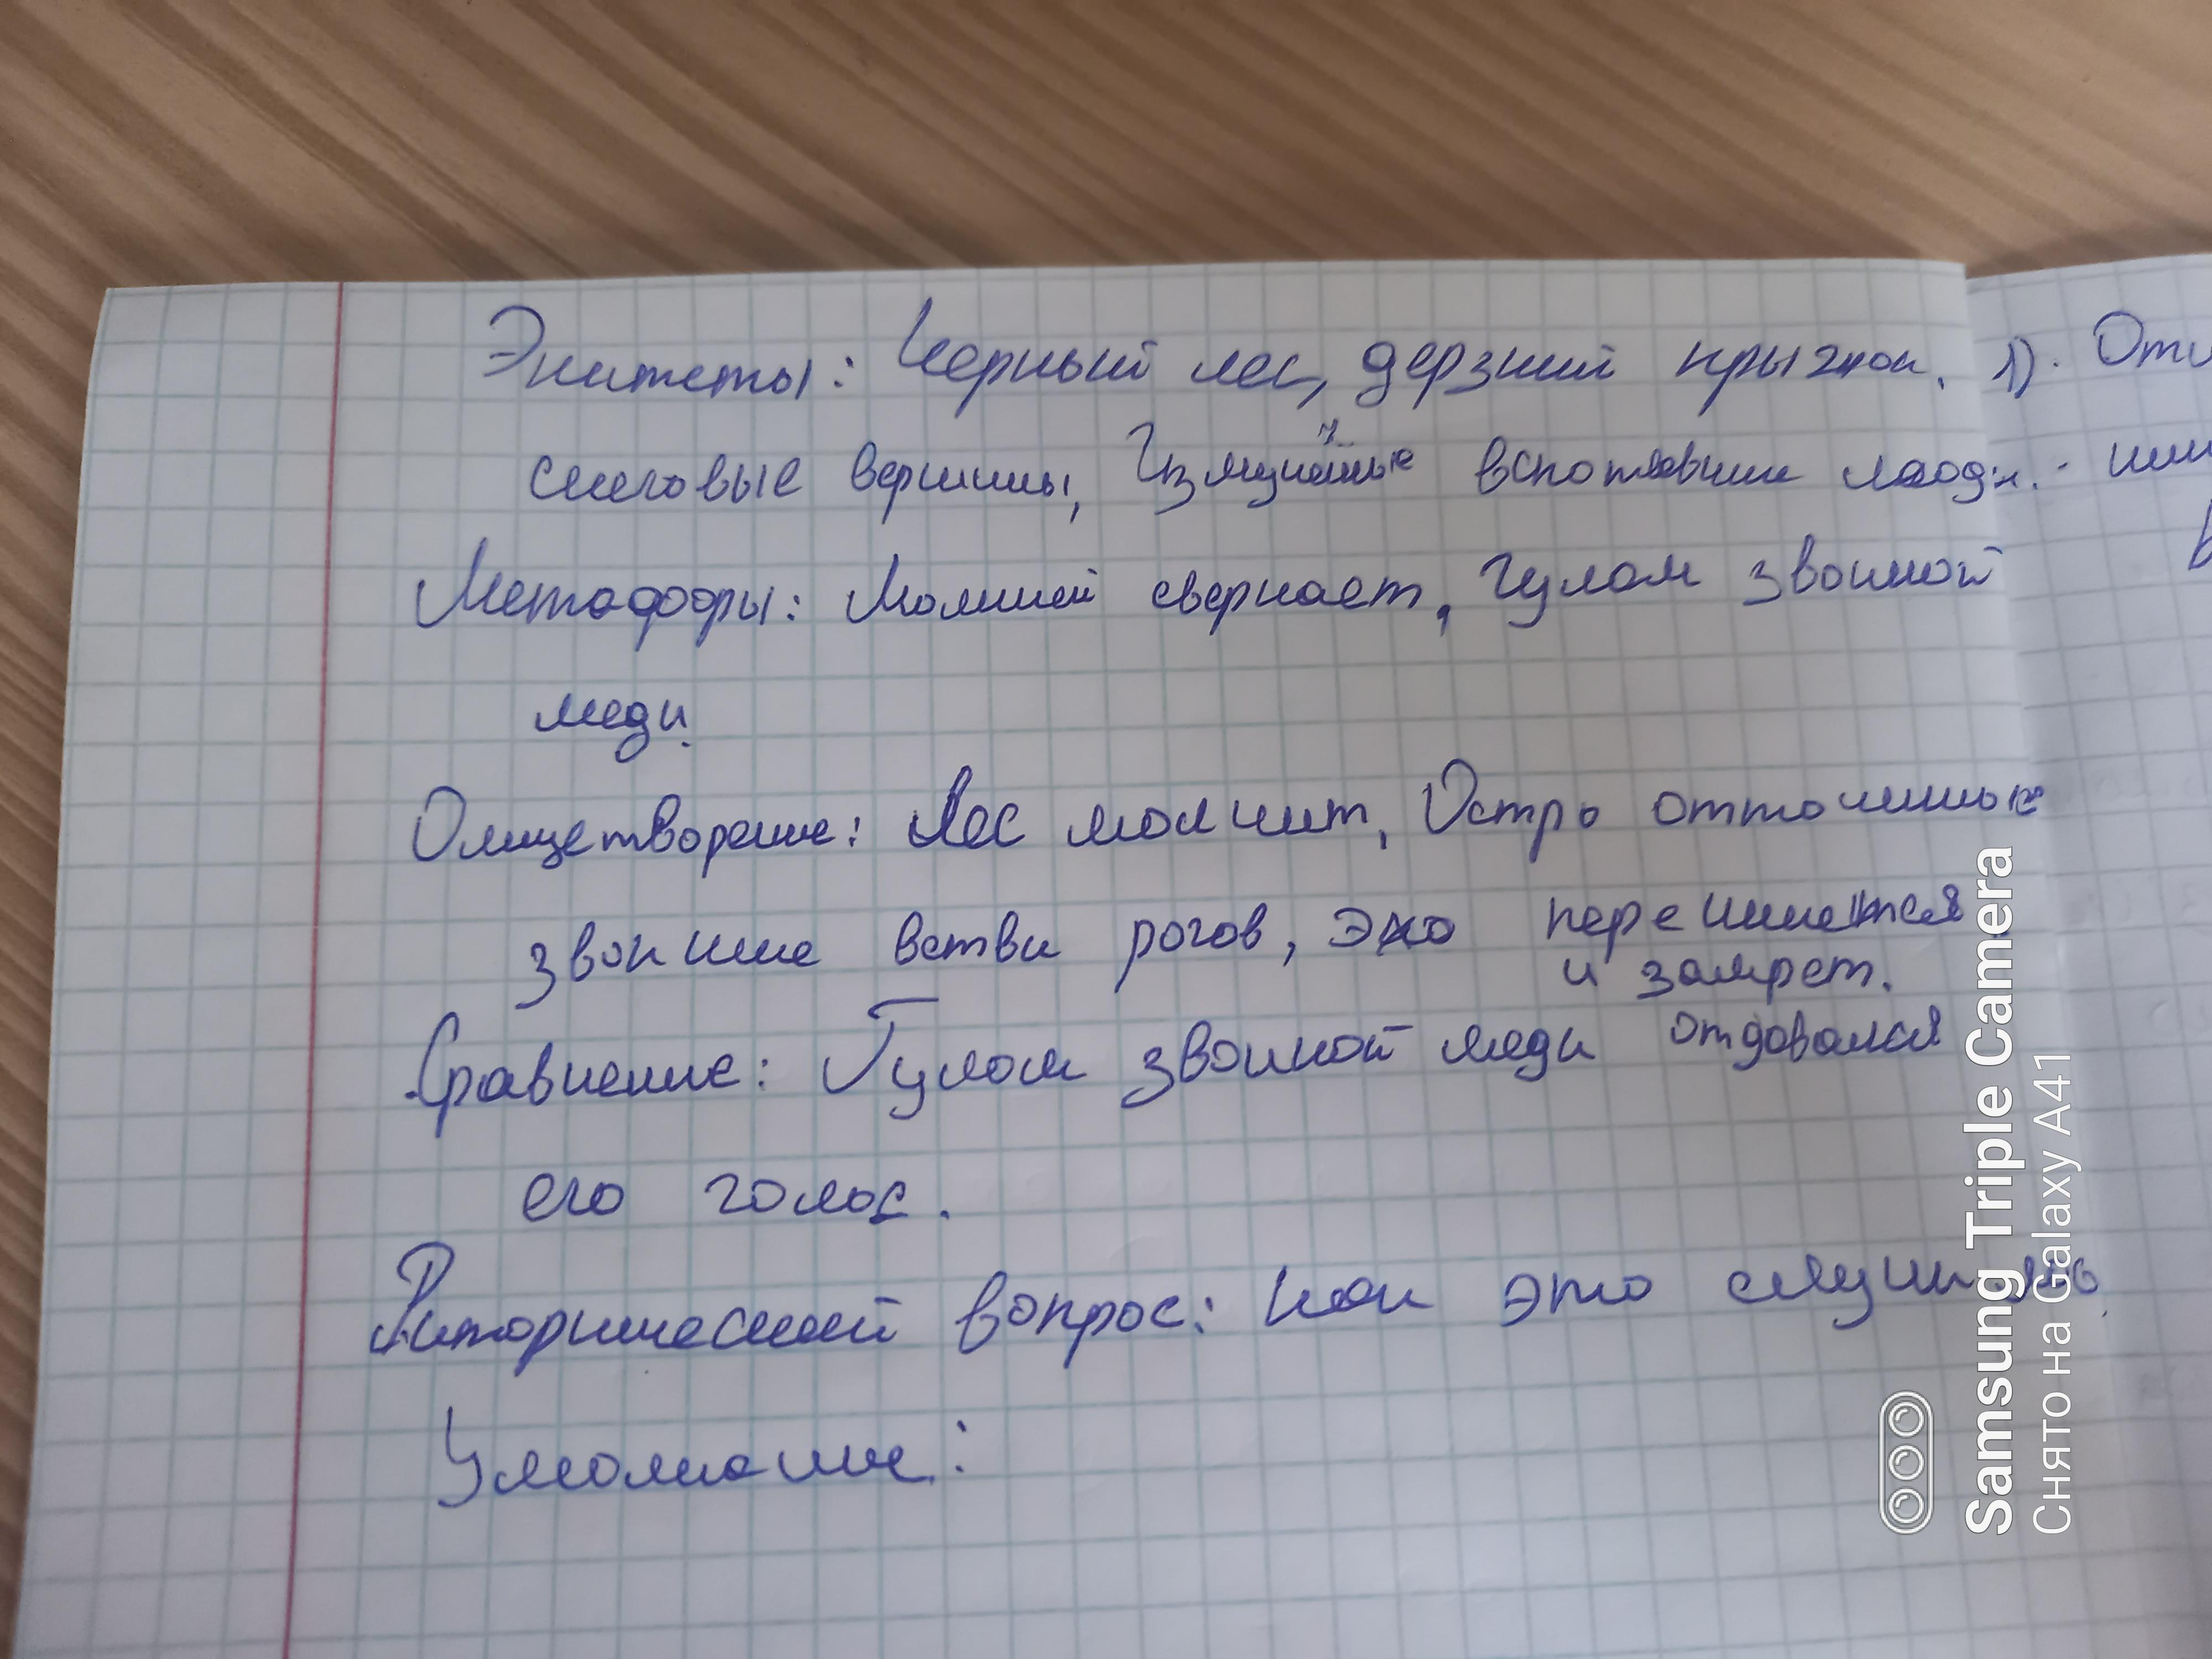 Эпитеты: Черный лес, дерзкий прыжок.
снеговые вершины, Измученные вспотевшие люди.
Метафоры: Молнией сверкает, Гулом звонкой
меди.
Олицетворение: Лес молчит, Остро отточеные
звонкие ветви рогов, эхо
и замрет.
Сравнение: Гулом звонкой меди отдовался
его голос.
Риторический вопрос: Как это
Умолчание:
1). Отв
Samsung Triple Camera
Снято на Galaxy A41